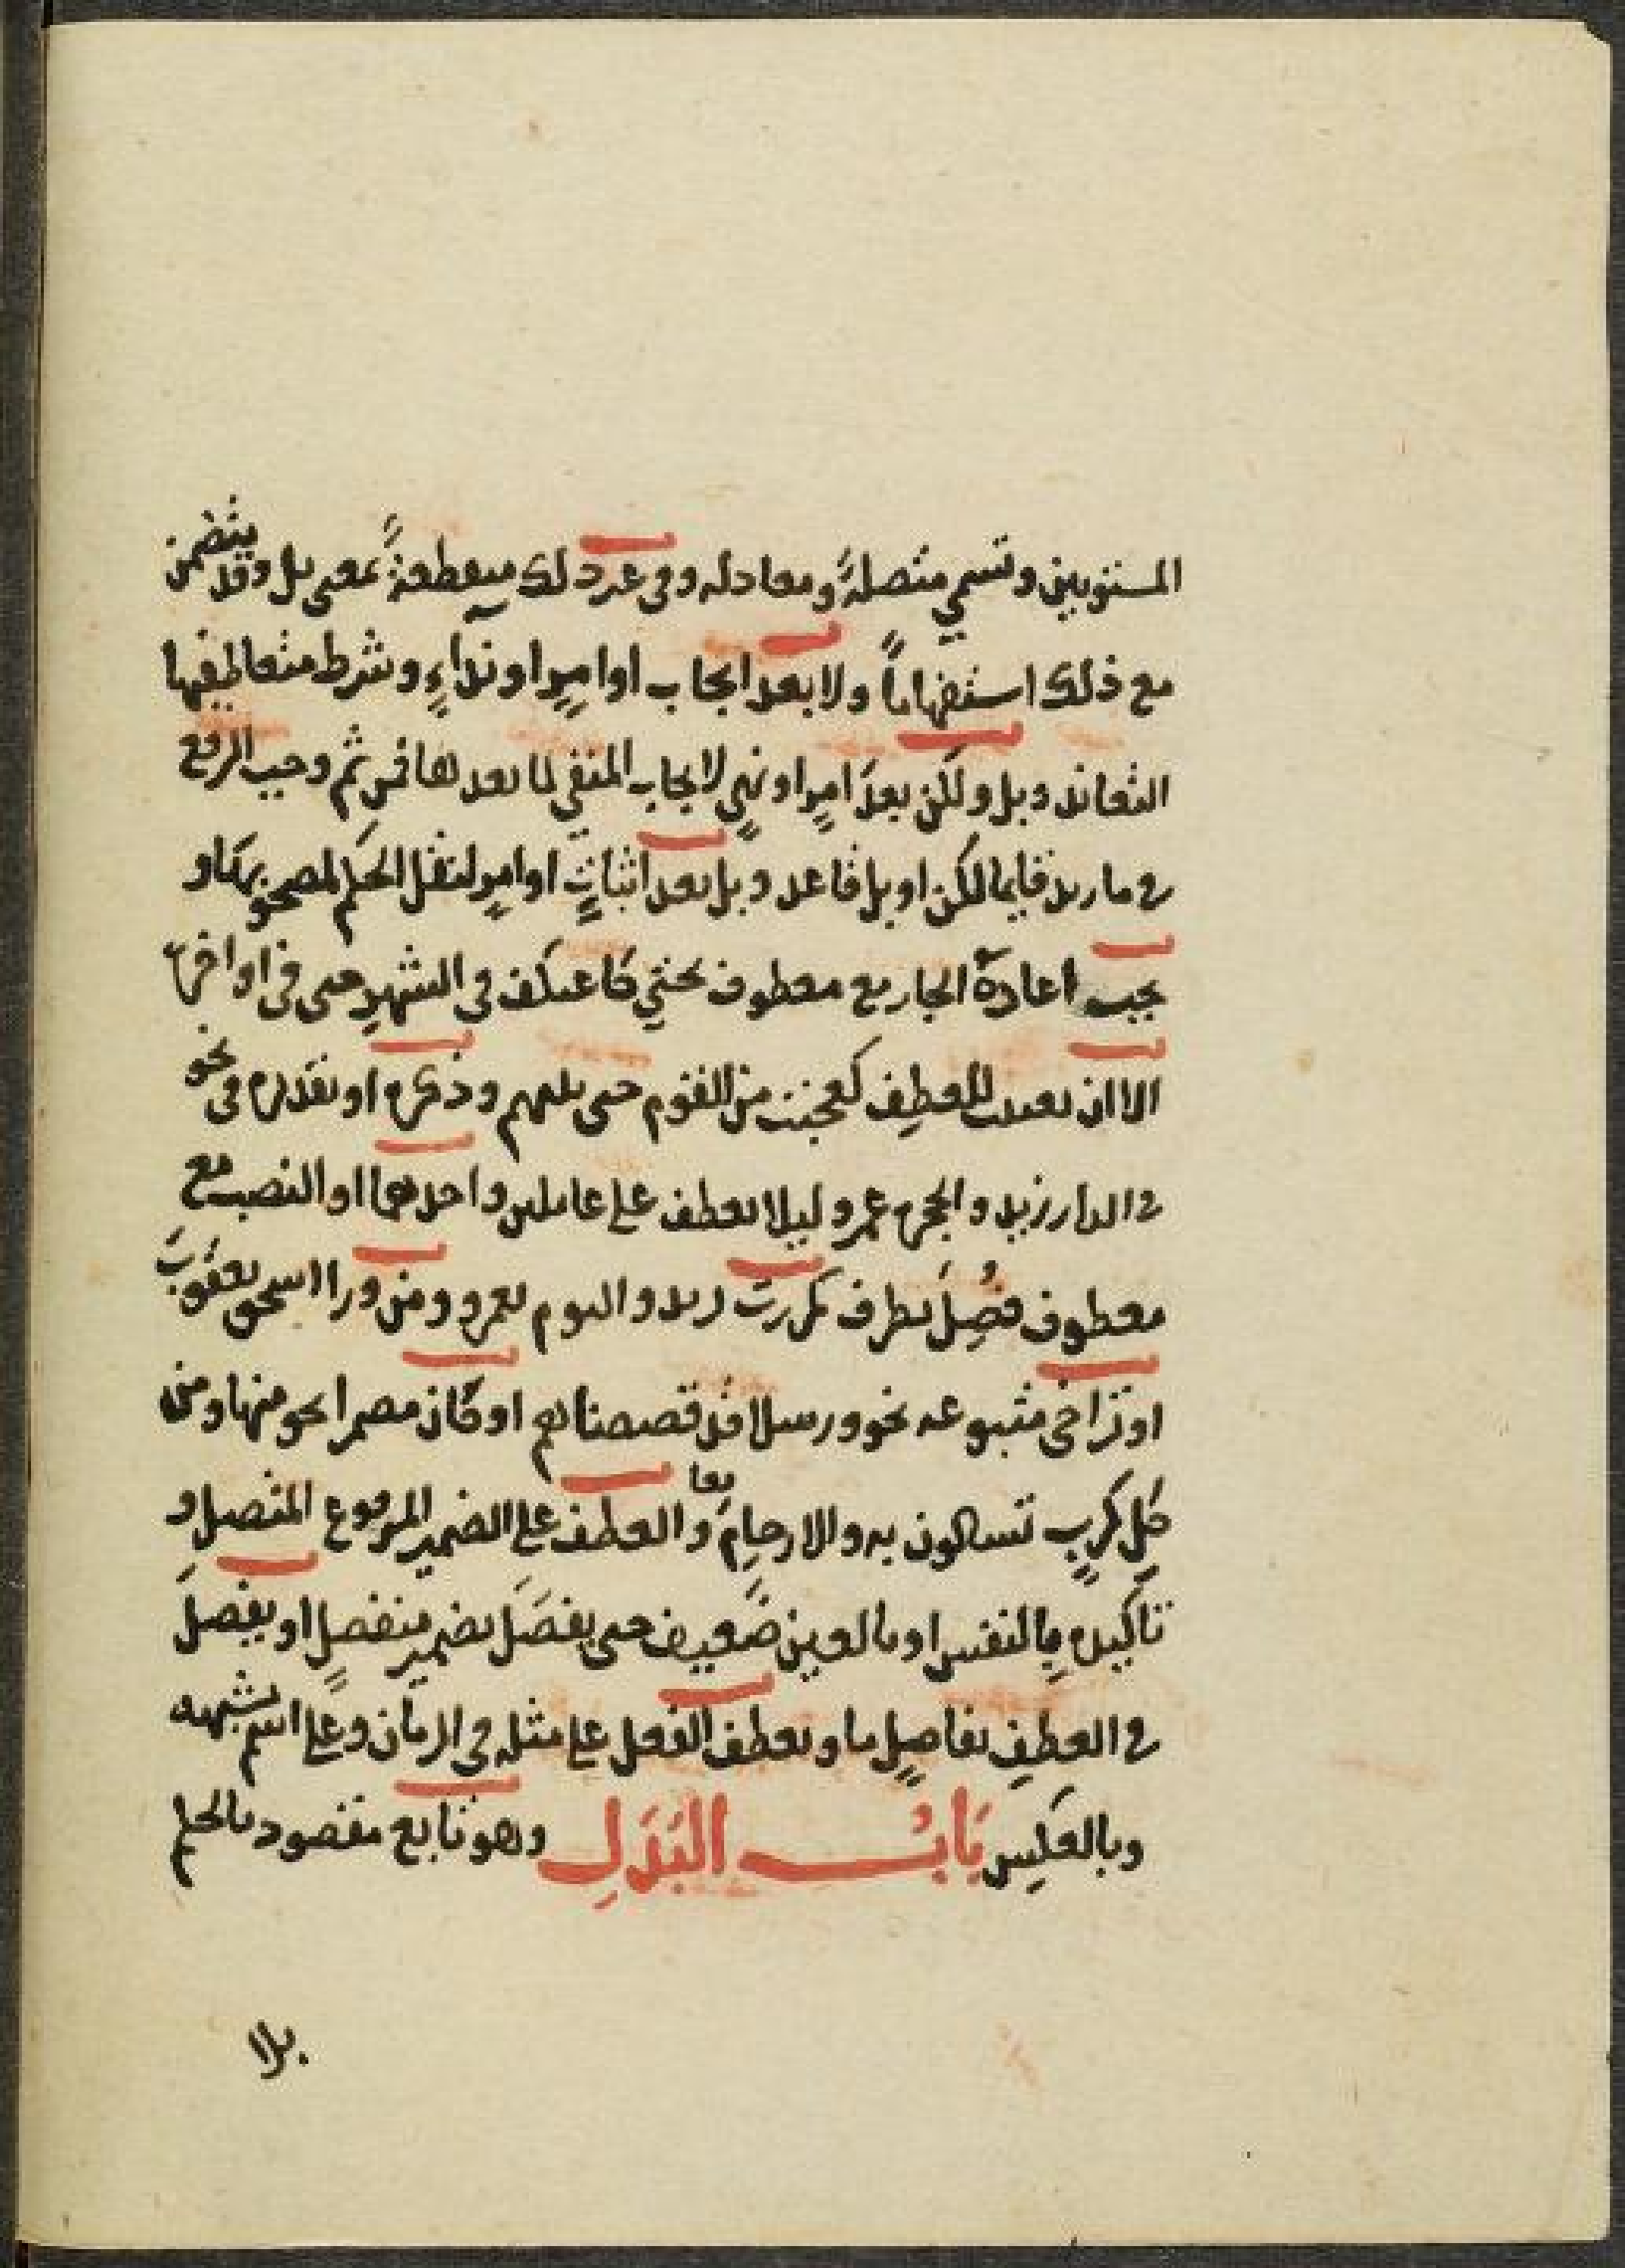 المستويين وتسمي متصلةً ومعادله وفى غير ذلك منقطعةً بمعنى بل وقد يتضمن
مع ذلك استفهاماً ولا بعد ايجاب او امرٍ او نداءٍ وشرط متعاطفيها
التعاند وبل ولكن بعدَ امرٍ او نهىٍ لايجاب المنفي لما بعدها فمن ثم وجب الرفع
فى ما زيد قايما لكن او بل قاعد وبل بعد اثباتٍ او امرٍ لنقل الحكم
يجب اعادة الجار مع معطوف بحتي كاعتكف في الشهرِ حتى فى اواخره
الا ان تعينت للعطفِ كعجبت من القوم حتى بنيهم وذكره او تقديره فى نحو
فى الدار زيد والحجره عمرو ليلا يعطف على عاملين واحدهما او النصب مع
معطوف فُصِلَ بظرف كمررت بزيد واليوم بعمرو ومن ورا اسحق يعقوبَ
او تراخى متبوعه نحو ورسلا قد قصصناهم او كان مضمرا نحو منها ومن
كلِ كربٍ تسالون به والارحامِ معا والعطف على الضمير المرفوع المتصل و
تاكيده بِالنفس او بالعين ضَعيف حتى يفصَلَ بضمير منفصلٍ او يفصلَ
فى العطفِ بفاصلٍ ما ويعطف الفعل على مثله في الزمان وعلى اسم يشبهه
وبالعكسِ بَابُ البَدَلِ وهو تابع مقصود بالحكم
بلا